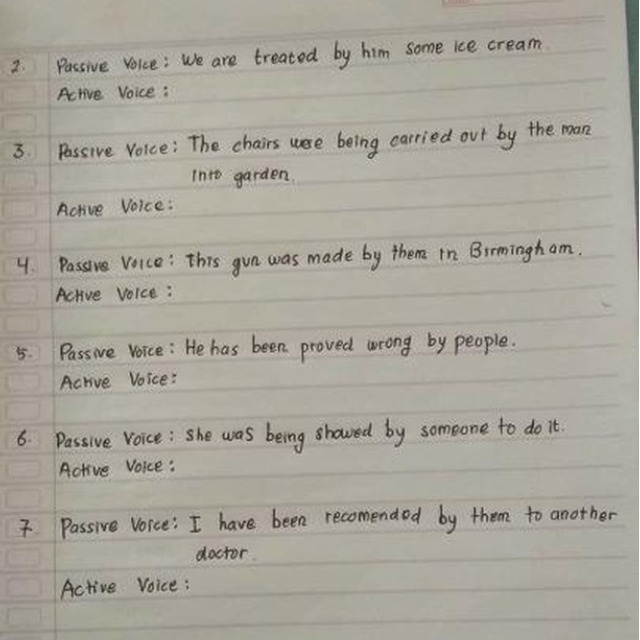 2. Passive Voice : We are treated by him some ice cream.
Active Voice :
3. Passive Voice : The chairs were being carried out by the man
into garden.
Active Voice :
4. Passive Voice : This gun was made by them in Birmingham.
Active Voice :
5. Passive Voice : He has been proved wrong by people.
Active Voice :
6. Passive Voice : She was being showed by someone to do it.
Active Voice :
7. Passive Voice : I have been recomended by them to another
doctor.
Active Voice :